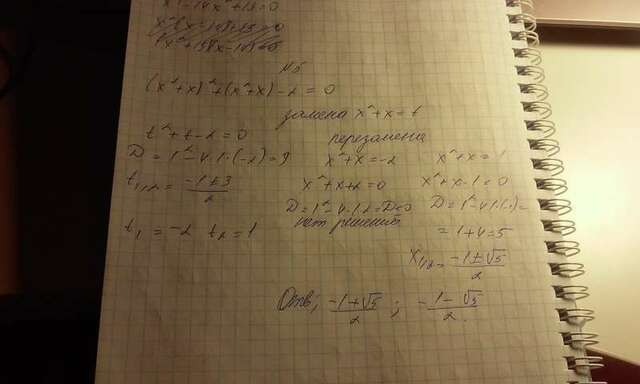 №5
(x²+x)²+(x²+x)-2=0
замена x²+x=t
t²+t-2=0
D=1²-4·1·(-2)=9
t₁,₂=(-1±3)/2
t₁=-2 t₂=1
перезамена
x²+x=-2
x²+x+2=0
D=1²-4·1·2= D<0
нет решений
x²+x=1
x²+x-1=0
=1+4=5
x₁,₂=(-1±√5)/2
Отв; (-1+√5)/2 ; (-1-√5)/2.